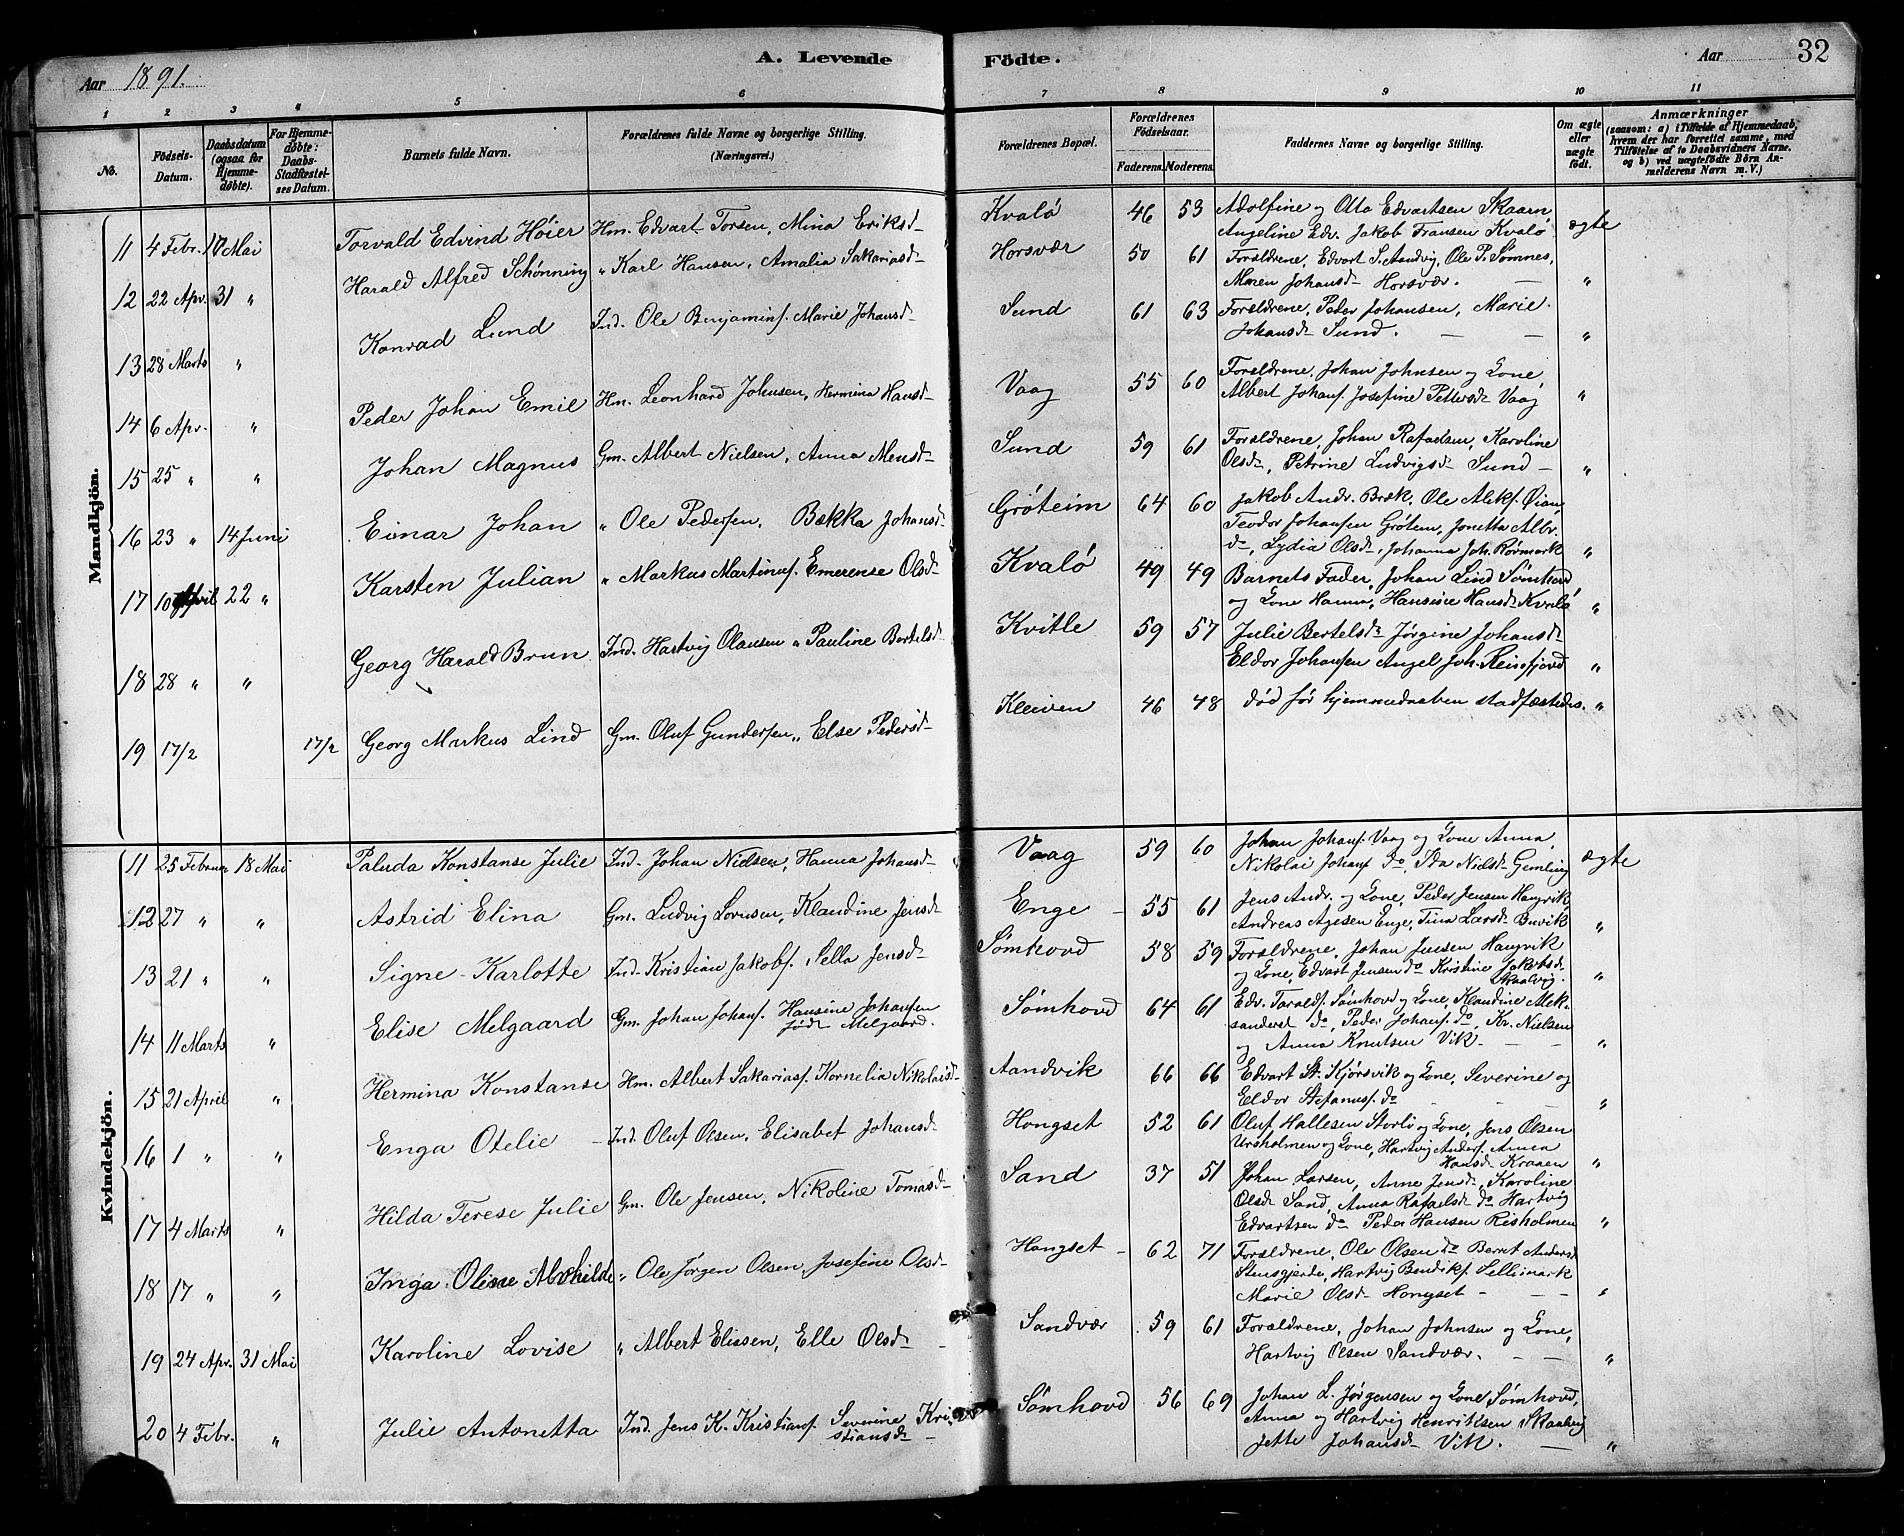 Aar 1891.
A. Levende Födte.
Aar
32
1 2 3 4 5 6 7 8 9 10 11
No.
Födsels-Datum.
Daabsdatum (ogsaa for Hjemmedøbte).
For Hjemmedøbte: Daabs-Stadfæstelses Datum.
Barnets fulde Navn.
Forældrenes fulde Navne og borgerlige Stilling. (Næringsvei.)
Forældrenes Bopæl.
Forældrenes Födselsaar.
Faderens. Moderens.
Faddernes Navne og borgerlige Stilling.
Om ægte eller uægte født.
Anmærkninger (saasom: a) i Tilfælde af Hjemmedaab, hvem der har forrettet samme, med Tilföielse af to Daabsvidners Navne. og b) ved uægtefödte Börn Anmelderens Navn m. V.)
Mandkjön.
11 4 Febr. 17 Mai Torvald Edvind Høier Hm. Edvart Torsen, Mina Eriksd- Kvalö 46 53 Adolfine og Otto Edvartsen Skaarn, Angeline Edv. Jakob Fransen Kvalø ægte
12 22 Apr. 31 " Harald Alfred Schønning " Karl Hansen, Amalia Sakariasd- Horsvær 50 61 Forældrene, Edvart S. Aandvig, Ole P. Sømnes, Maren Johansd- Horsvær. — "
13 28 Marts " Konrad Lund Ind. Ole Benjamins. Marie Johansd- Sund 61 63 Forældrene, Peder Johansen, Marie Johansd- Sund. — — "
14 6 Apr. " Peder Johan Emil Hm. Leonhard Johnsen, Hermina Hansd- Vaag 55 60 Forældrene, Johan Johnsen og Kone, Albert Johans. Josefine Pettersd- Vaag "
15 25 " " Johan Magnus Gm. Albert Nielsen, Anna Mensd- Sund 59 61 Forældrene, Johan Rafaelsen, Karoline Olsd-, Petrine Ludvigsd- Sund — "
16 23 " 14 Juni Einar Johan " Ole Pedersen, Bækka Johansd- Gróteim 64 60 Jakob Andr. Bræk, Ole Aleks. Øian, Teodor Johansen Grótem, Jonetta Albr. d-, Lydia Olsd-, Johanna Joh. Rørmark "
17 10 April 22 " Karsten Julian " Markus Martinus. Emerense Olsd- Kvaló 49 49 Barnets Fader, Johan Lind Sømhovd og Kone Hanna, Hansine Hansd- Kvaló "
18 28 " " Georg Harald Brun Ind. Hartvig Olausen " Pauline Bertelsd- Kvitle 59 57 Julie Bertelsd- Jørgine Johansd- Eldor Johansen Angel Joh. Reinsfjord "
19 17/2 17/2 Georg Markus Lind Gm. Oluf Gundersen " Else Pedersd- Kleiven 46 48 død før hjemmedaaben stadfæstedes. "
Kvindekjön.
11 25 Februar 18 Mai Paluda Konstanse Julie Ind. Johan Nielsen, Hanna Johansd- Vaag 59 60 Johan Johans. Vaag og Kone Anna, Nikolai Johans do, Ida Nielsd- Gemling ægte
12 27 " " Astrid Elina Gm. Ludvig Lornsen, Klaudine Jensd- Enge 55 61 Jens Andr. og Kone, Peder Jensen Hangvik Andreas Agesen Enge, Tina Larsd- Buvik "
13 21 " " Signe Karlotte Ind. Kristian Jakobs. Sella Jensd- Sømhovd 58 59 Forældrene, Johan Jensen Hangvik og Kone, Edvart Jensen do Kristine Jakobsd- Skaalvig. "
14 11 Marts " Elise Melgaard Gm. Johan Johans. Hansine Johansen født Melgaard. Sómhovd 64 61 Edv. Taralds. Sømhovd og Kone, Klaudine Aleksanderst do, Peder Johans. do, Kr. Nielsen og Anna Knutsen Vik — — "
15 21 April " Hermina Konstanse Hm. Albert Sakarias. Kornelia Nikolaisd- Aandvik 66 66 Edvart St. Kjørsvik og Kone, Severine og Eldor Stefanus. do — — — "
16 1 " " Enga Otelie Ind. Oluf Olsen, Elisabet Johansd- Hongset 52 61 Oluf Hallesen Storlø og Kone, Jens Olsen Ursholmen og Kone, Hartvig Anders. Anna Hansd- Kraaen "
17 4 Marts " Hilda Terese Julie Gm. Ole Jensen, Nikoline Tomasd- Sand 37 51 Johan Larsen, Anne Jensd-, Karoline Olsd- Sand, Anna Rafaelsd- do Hartvig Edvartsen do Peder Hansen Risholmen "
18 17 " " Inga Oline Alvhilde " Ole Jørgen Olsen, Josefine Olsd- Hongset 62 71 Forældrene, Ole Olsen do Bernt Anders Stensgjerde, Hartvig Bendiks. Sellismark Marie Olsd- Hongset — — — "
19 24 Apr. 31 Mai Karoline Lovise " Albert Elissen, Elle Olsd- Sandvær 59 61 Forældrene, Johan Johnsen og Kone, Hartvig Olsen Sandvær. — — "
20 4 Febr. " Julie Antonetta Ind. Jens K. Kristians. Severine Kristiansd- Sómhovd 56 69 Johan L. Jørgensen og Kone Sómhovd, Anna og Hartvig Henriksen Skaalvig Jette Johansd- Vik. — "